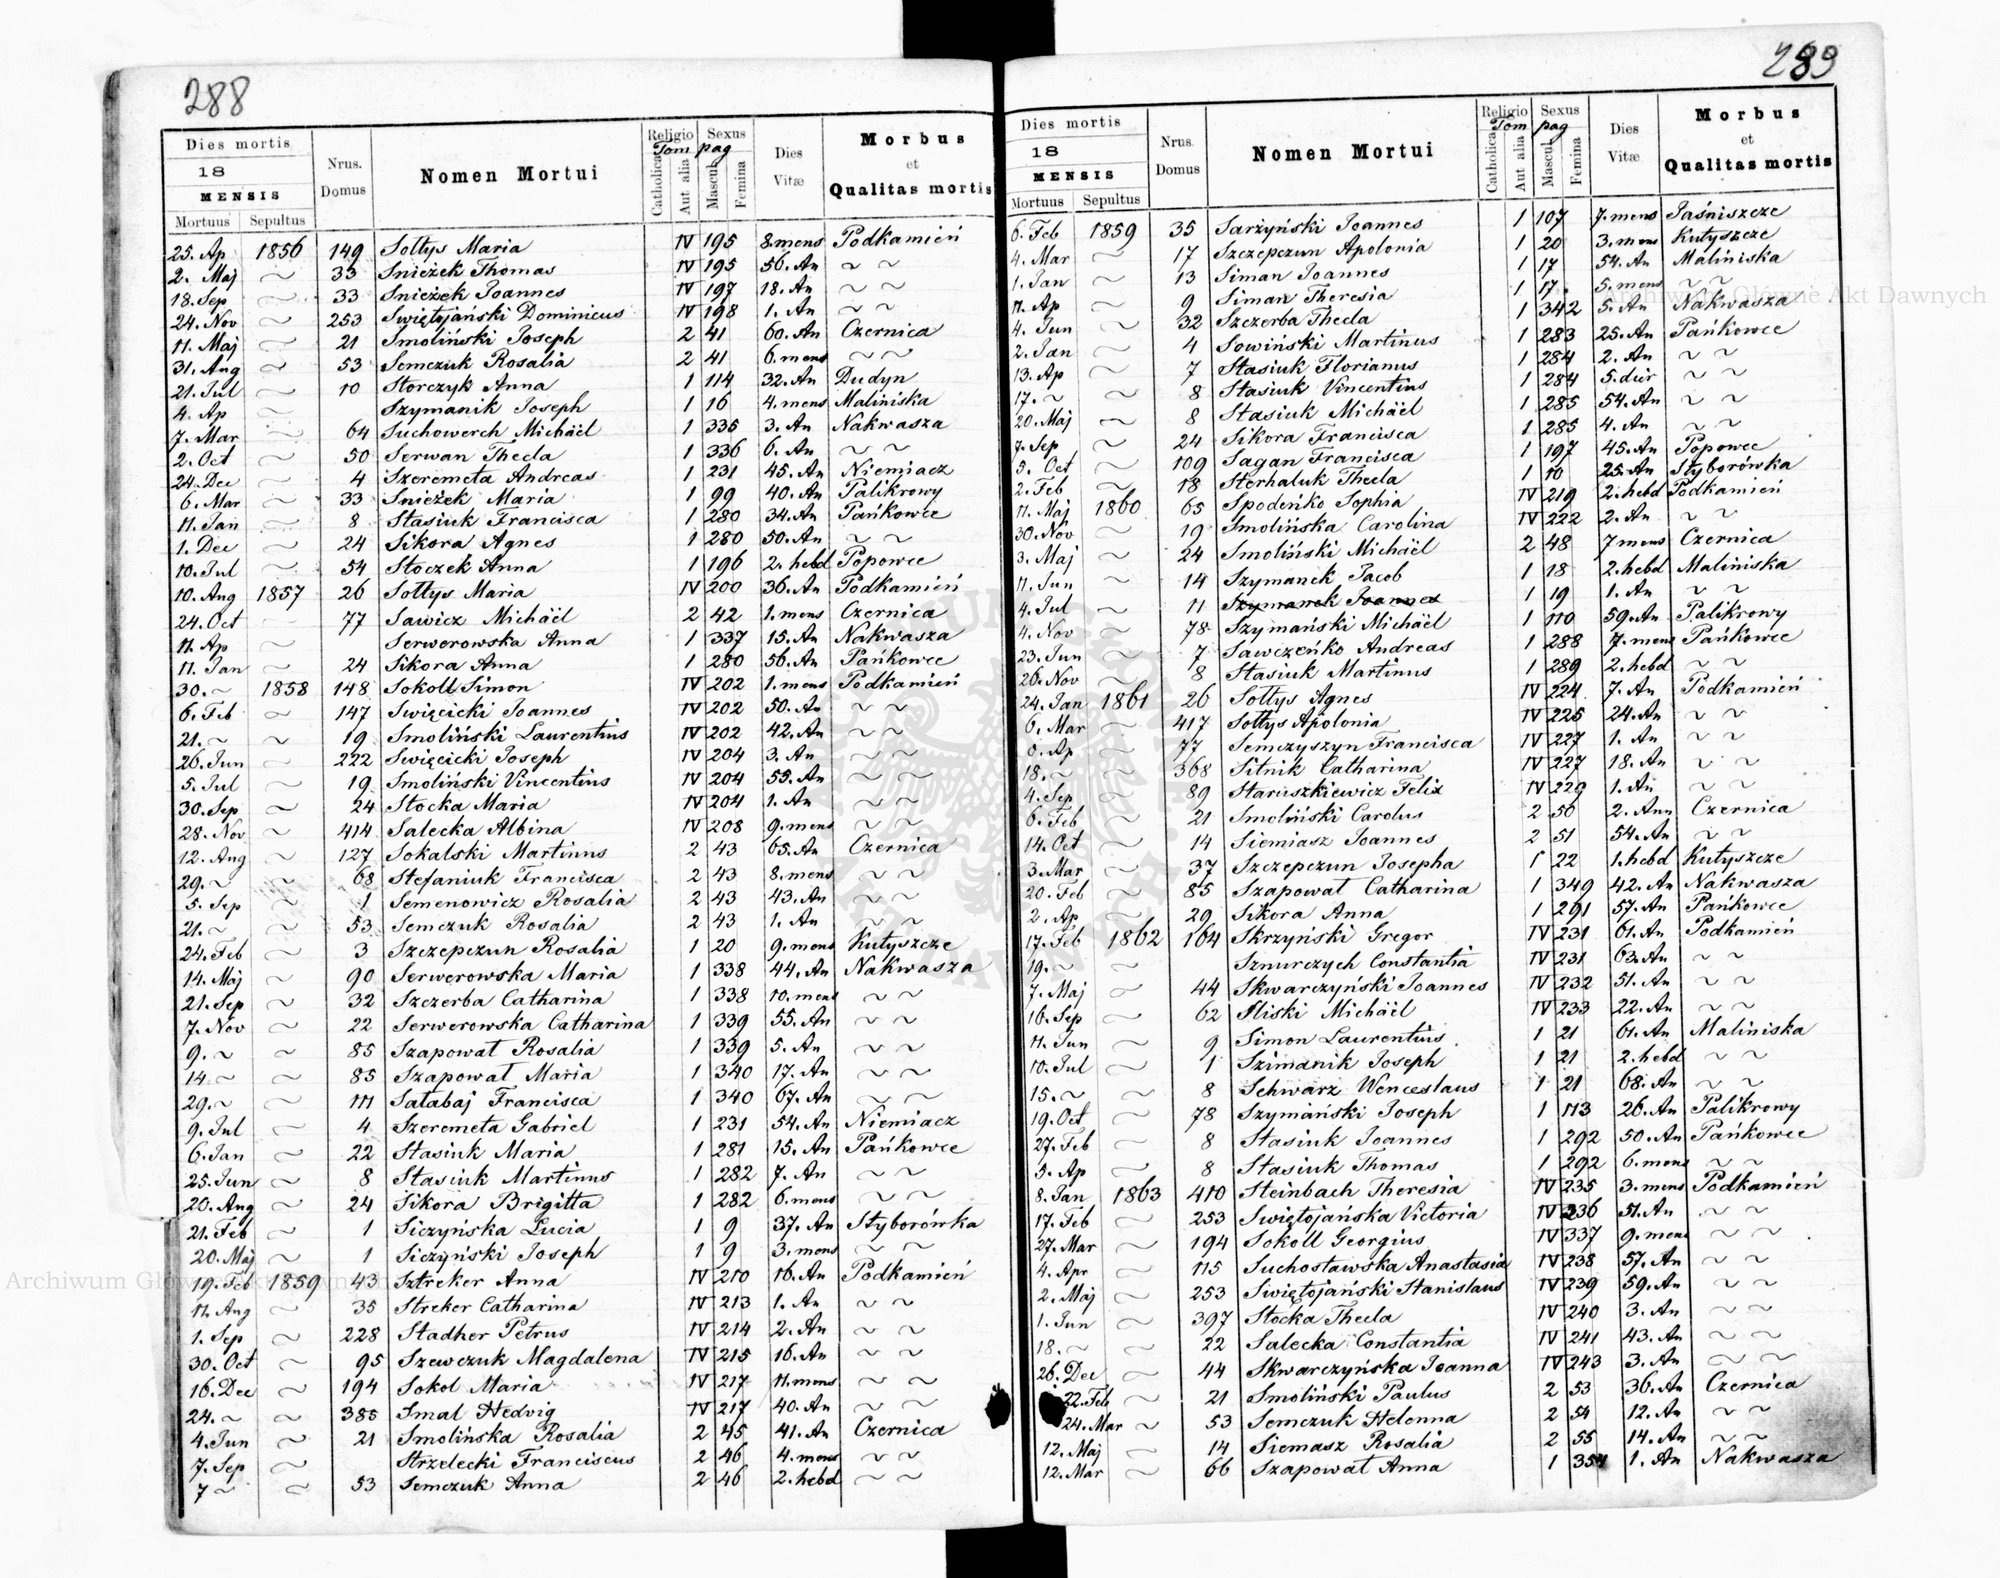 288
Dies mortis
18
MENSIS
Mortuus Sepultus
Nrus. Domus
Nomen Mortui
Religio Tom
Catholica Aut alia
Sexus pag
Mascul Femina
Dies Vitæ
Morbus et Qualitas mortis
25. Ap 1856 149 Sołtys Maria IV 195 8. mens Podkamień
2. Maj ~ 33 Snieżek Thomas IV 195 56. An ~ ~
18. Sep ~ 33 Snieżek Joannes IV 197 18. An ~ ~
24. Nov ~ 253 Swiętojański Dominicus IV 198 1. An ~ ~
11. Maj ~ 21 Smoliński Joseph 2 41 60. An Czernica
31. Aug ~ 53 Semczuk Rosalia 2 41 6. mens ~ ~
21. Jul ~ 10 Storczyk Anna 1 114 32. An Dudyn
4. Ap ~ Szymanik Joseph 1 16 4. mens Maliniska
7. Mar ~ 64 Suchowerch Michäel 1 335 3. An Nakwasza
2. Oct ~ 50 Serwan Thecla 1 336 6. An ~ ~
24. Dec ~ 4 Szeremeta Andreas 1 231 45. An Niemiacz
6. Mar ~ 33 Snieżek Maria 1 99 40. An Palikrowy
11. Jan ~ 8 Stasiuk Francisca 1 280 34. An Pańkowce
1. Dec ~ 24 Sikora Agnes 1 280 50. An ~ ~
10. Jul ~ 54 Stoczek Anna 1 196 2. hebd Popowce
10. Aug 1857 26 Sołtys Maria IV 200 36. An Podkamień
24. Oct 77 Sawicz Michäel 2 42 1. mens Czernica
11. Ap ~ Serwerowska Anna 1 337 15. An Nakwasza
11. Jan ~ 24 Sikora Anna 1 280 56. An Pańkowce
30. ~ 1858 148 Sokoll Simon IV 202 1. mens Podkamień
6. Feb ~ 147 Swięcicki Joannes IV 202 50. An ~ ~
21. ~ ~ 19 Smoliński Laurentius IV 202 42. An ~ ~
26. Jun ~ 222 Swięcicki Joseph IV 204 3. An ~ ~
5. Jul ~ 19 Smoliński Vincentius IV 204 55. An ~ ~
30. Sep ~ 24 Stocka Maria IV 204 1. An ~ ~
28. Nov ~ 414 Salecka Albina IV 208 9. mens ~ ~
12. Aug ~ 127 Sokalski Martinus 2 43 65. An Czernica
29. ~ ~ 68 Stefaniuk Francisca 2 43 8. mens ~ ~
5. Sep ~ 1 Semenowicz Rosalia 2 43 43. An ~ ~
21. ~ ~ 53 Semczuk Rosalia 2 43 1. An ~ ~
24. Feb ~ 3 Szczepczun Rosalia 1 20 9. mens Kutyszcze
14. Maj ~ 90 Serwerowska Maria 1 338 44. An Nakwasza
21. Sep ~ 32 Szczerba Catharina 1 338 10. mens ~ ~
7. Nov ~ 22 Serwerowska Catharina 1 339 55. An ~ ~
9. ~ ~ 85 Szapował Rosalia 1 339 5. An ~ ~
14 ~ ~ 85 Szapował Maria 1 340 17. An ~ ~
29. ~ ~ 111 Sałabaj Francisca 1 340 67. An ~ ~
9. Jul ~ 4 Szeremeta Gabriel 1 231 54. An Niemiacz
6. Jan ~ 22 Stasiuk Maria 1 281 15. An Pańkowce
25. Jun ~ 8 Stasiuk Martinus 1 282 7. An ~ ~
20. Aug ~ 24 Sikora Brigitta 1 282 6. mens ~ ~
21. Feb ~ 1 Siczyńska Lucia 1 9 37. An Styborówka
20. Maj ~ 1 Siczyński Joseph 1 9 3. mens ~ ~
19. Feb 1859 43 Sztreker Anna IV 210 16. An Podkamień
11. Aug ~ 35 Streker Catharina IV 213 1. An ~ ~
1. Sep ~ 228 Stadher Petrus IV 214 2. An ~ ~
30. Oct ~ 95 Szewczuk Magdalena IV 215 16. An ~ ~
16. Dec ~ 194 Sokol Maria IV 217 11. mens ~ ~
24. ~ ~ 385 Smal Hedvig IV 217 40. An ~ ~
4. Jun ~ 21 Smolińska Rosalia 2 45 41. An Czernica
7. Sep ~ Strzelecki Franciscus 2 46 4. mens ~ ~
7 ~ ~ 53 Semczuk Anna 2 46 2. hebd ~ ~
289
Dies mortis
18
MENSIS
Mortuus Sepultus
Nrus. Domus
Nomen Mortui
Religio Tom
Catholica Aut alia
Sexus pag
Mascul Femina
Dies Vitæ
Morbus et Qualitas mortis
6. Feb 1859 35 Sarżyński Joannes 1 107 7. mens Jaśniszcze
4. Mar ~ 17 Szczepczun Apolonia 1 20 3. mens Kutyszcze
1. Jan ~ 13 Siman Joannes 1 17 54. An Maliniska
11. Ap ~ 9 Siman Theresia 1 17 5. mens ~ ~
4. Jun ~ 32 Szczerba Thecla 1 342 5. An Nakwasza
2. Jan ~ 4 Sowiński Martinus 1 283 25. An Pańkowce
13. Ap ~ 7 Stasiuk Florianus 1 284 2. An ~ ~
17. ~ ~ 8 Stasiuk Vincentius 1 284 5. dier ~ ~
20. Maj ~ 8 Stasiuk Michäel 1 285 54. An ~ ~
7. Sep ~ 24 Sikora Francisca 1 285 4. An ~ ~
5. Oct ~ 109 Sagan Francisca 1 197 45. An Popowce
2. Feb ~ 18 Sterhaluk Thecla 1 10 25. An Styborówka
11. Maj 1860 65 Spodeńko Sophia IV 219 2. hebd Podkamień
30. Nov ~ 19 Smolińska Carolina IV 222 2. An ~ ~
3. Maj ~ 24 Smoliński Michäel 2 48 7 mens Czernica
11. Jun ~ 14 Szymanek Jacob 1 18 2. hebd Maliniska
4. Jul ~ 11 Szymanek Joannes 1 19 1. An ~ ~
4. Nov ~ 78 Szymański Michäel 1 110 59. An Palikrowy
23. Jun ~ 7 Sawczeńko Andreas 1 288 7. mens Pańkowce
26. Nov ~ 8 Stasiuk Martinus 1 289 2. hebd ~ ~
24. Jan 1861 26 Sołtys Agnes IV 224 7. An Podkamień
6. Mar ~ 417 Sołtys Apolonia IV 225 24. An ~ ~
Ap ~ 77 Semczyszyn Francisca IV 227 1. An ~ ~
18. ~ ~ 368 Sitnik Catharina IV 227 18. An ~ ~
4. Sep ~ 89 Staruszkiewicz Felix IV 229 1. An ~ ~
6. Feb ~ 21 Smoliński Carolus 2 50 2. Ann Czernica
14. Oct ~ 14 Siemiasz Joannes 2 51 54. An ~ ~
3. Mar ~ 37 Szczepczun Josepha 1 22 1. hebd Kutyszcze
20. Feb ~ 85 Szapował Catharina 1 349 42. An Nakwasza
2. Ap ~ 29 Sikora Anna 1 291 57. An Pańkowce
17. Feb 1862 164 Skrzyński Gregor IV 231 61. An Podkamień
19. ~ ~ Sznurczych Constantia IV 231 63. An ~ ~
7. Maj ~ 44 Skwarczyński Joannes IV 232 51. An ~ ~
16. Sep ~ 62 Sliski Michäel IV 233 22. An ~ ~
11. Jun ~ 9 Simon Laurentius 1 21 61. An Maliniska
10. Jul ~ 1 Szimanik Joseph 1 21 2. hebd ~ ~
15. ~ ~ 8 Schwarz Wenceslaus 1 21 68. An ~ ~
19. Oct ~ 78 Szymański Joseph 1 113 26. An Palikrowy
27. Feb ~ 8 Stasiuk Joannes 1 292 50. An Pańkowce
5. Ap ~ 8 Stasiuk Thomas 1 292 6. mens ~ ~
8. Jan 1863 410 Steinbach Theresia IV 235 3. mens Podkamień
17. Feb ~ 253 Swiętojańska Victoria IV 236 51. An ~ ~
27. Mar ~ 194 Sokoll Georgius IV 337 9. mens ~ ~
4. Apr ~ 115 Suchosławska Anastasia IV 238 57. An ~ ~
2. Maj ~ 253 Swiętojański Stanislaus IV 239 59. An ~ ~
1. Jun ~ 397 Stocka Thecla IV 240 3. An ~ ~
18. ~ ~ 22 Salecka Constantia IV 241 43. An ~ ~
26. Dec ~ 44 Skwarczyńska Joanna IV 243 3. An ~ ~
22. Feb ~ 21 Smoliński Paulus 2 53 36. An Czernica
24. Mar ~ 53 Semczuk Helenna 2 54 12. An ~ ~
12. Maj ~ 14 Siemasz Rosalia 2 55 14. An ~ ~
12. Mar ~ 66 Szapował Anna 1 354 1. An Nakwasza
Archiwum Główne Akt Dawnych
Archiwum Główne Akt Dawnych